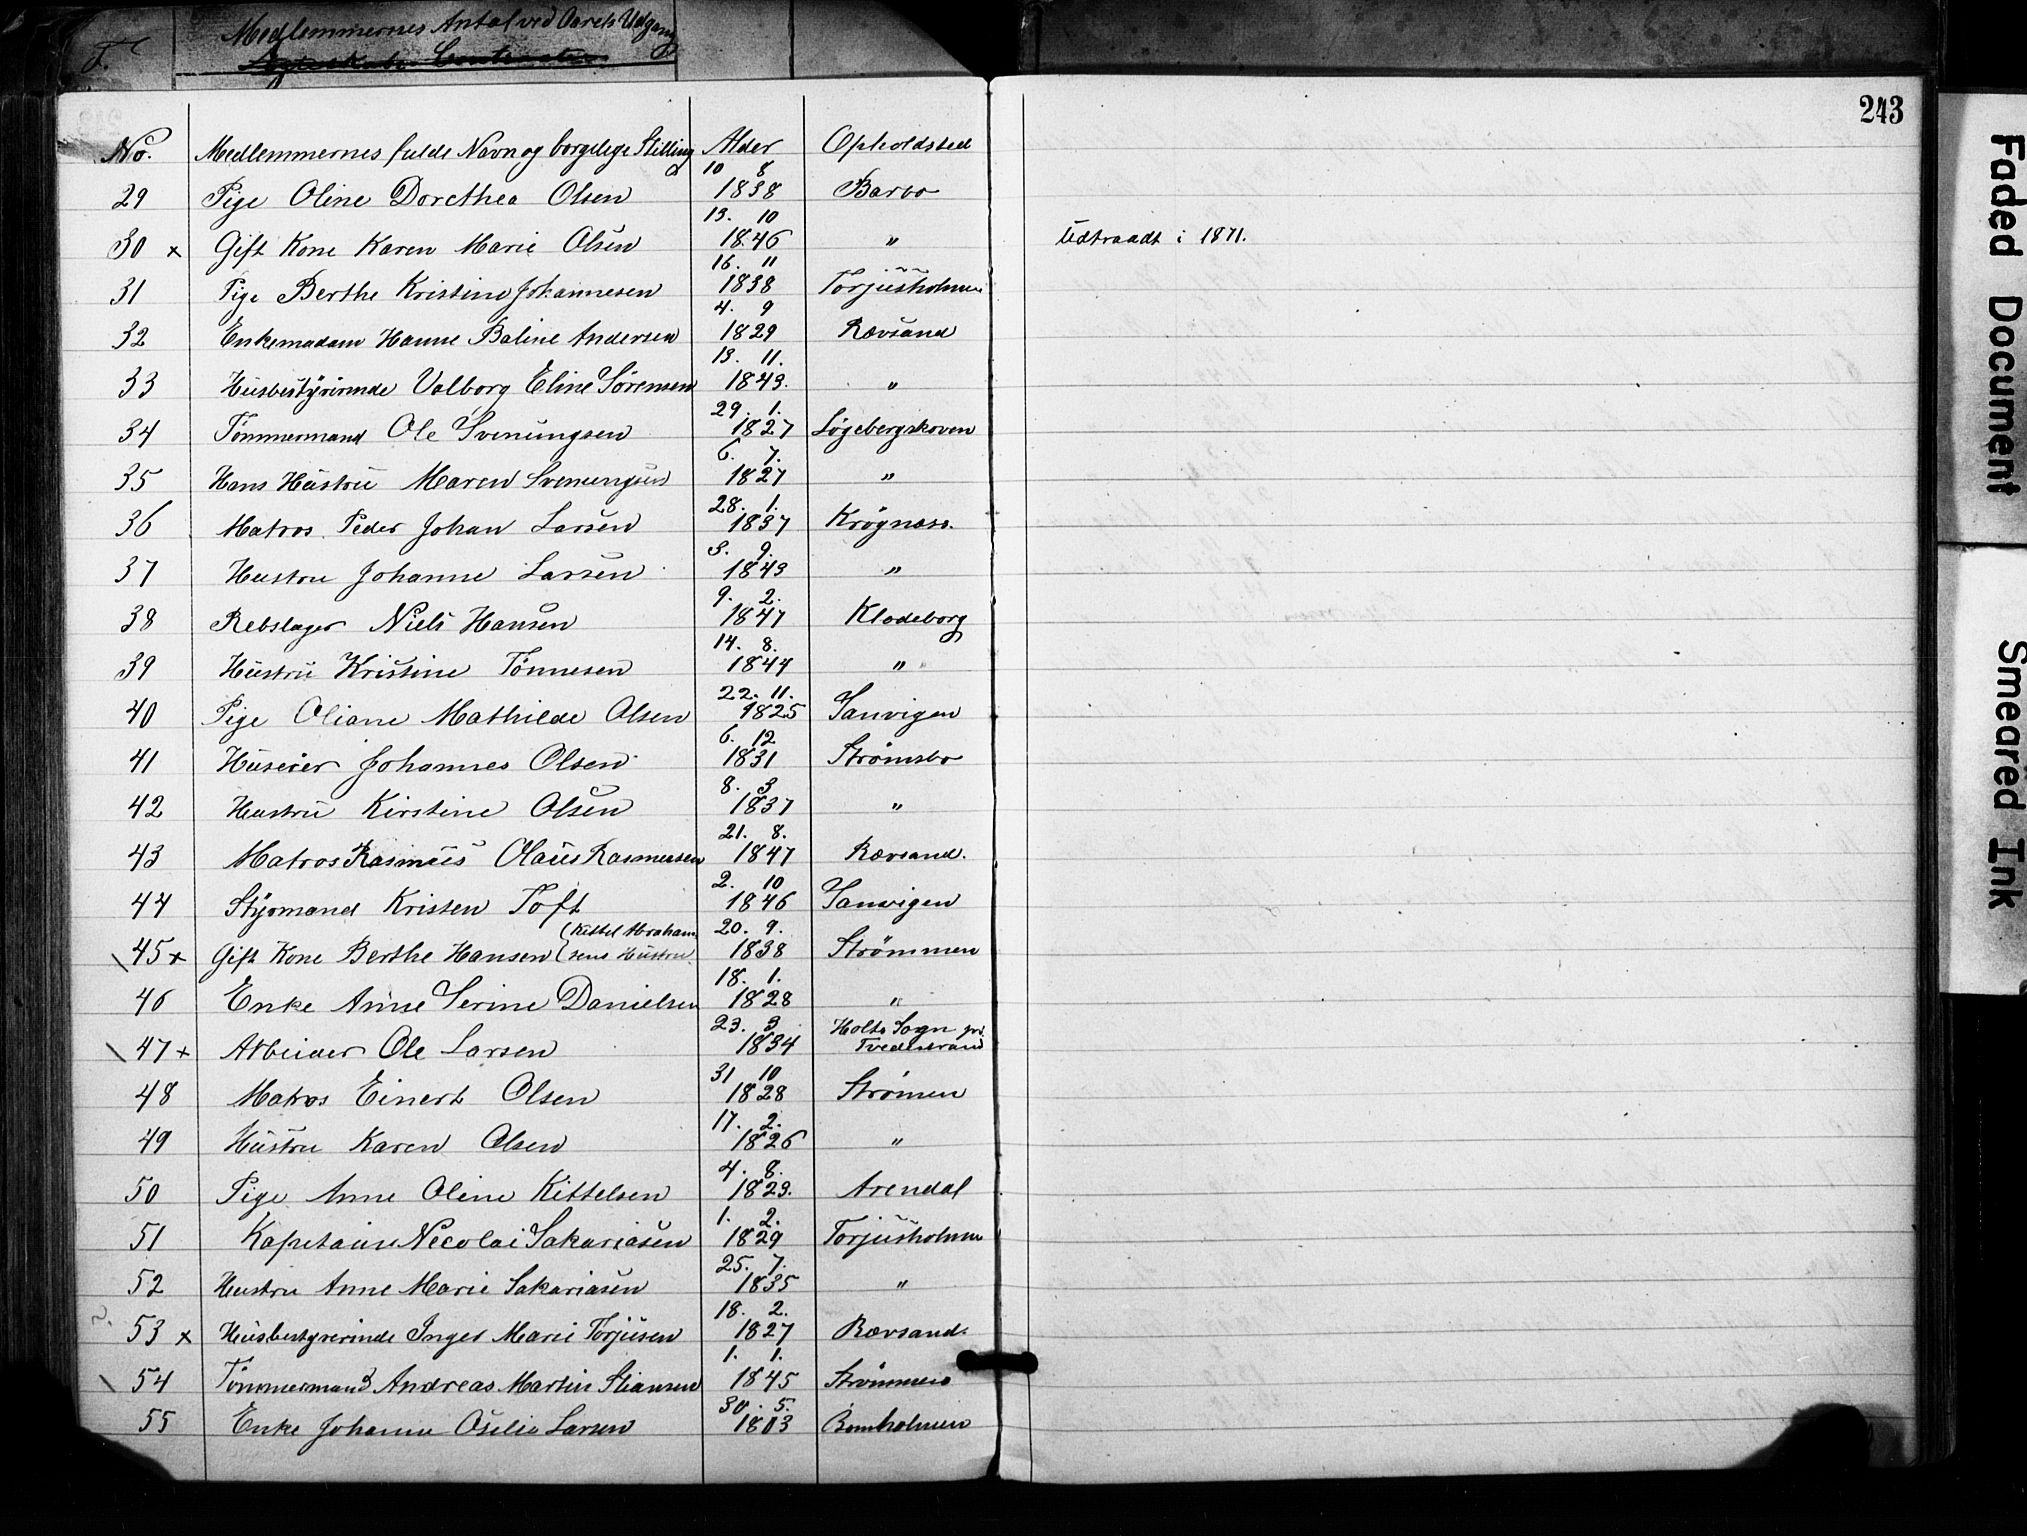 T.
Medlemmernes Antal ved Aarets Udgang
243
No. Medlemmernes fulde Navn og borgelige Stilling Alder Opholdsted
29 Pige Oline Dorethea Olsen 10 8 1838 Barbo
30 x Gift Kone Karen Marie Olsen 13. 10 1846 " Udtraadt i 1871.
31 Pige Berthe Kristine Johannesen 16. 11 1838 Torjusholmen
32 Enkemadam Hanne Baline Andersen 4. 9 1829 Rævsand
33 Husbestyrerinde Valborg Eline Sørensen 13. 11. 1843. "
34 Tømmermand Ole Svenungsen 29. 1. 1827 Løgebergskoven
35 Hans Hustru Maren Svenungsen 6. 7. 1827 "
36 Matros Peder Johan Larsen 28. 1. 1837 Krøgnæss.
37 Hustru Johanne Larsen 3. 9. 1843 "
38 Rebslager Niels Hansen 9. 2. 1847 Klodeborg
39 Hustru Kristine Tønnesen 14. 8. 1844 "
40 Pige Oliane Mathilde Olsen 22. 11. 1825 Sanvigen
41 Huseier Johannes Olsen 6. 12 1831 Strømsbo
42 Hustru Kirstine Olsen 8. 3 1837 "
43 Matros Rasmus Olaus Rasmussen 21. 8. 1847 Rævsand.
44 Styrmand Kristen Toft 2. 10 1846 Sanvigen
45 x Gift Kone Berthe Hansen (Kittel Abrahamsens Hustru 20. 9. 1838 Strømmen
46 Enke Anne Serine Danielsen 18. 1. 1828 "
47 + Arbeider Ole Larsen 23. 3 1834 Holts Sogn pr. Tvedestrand
48 Matros Einert Olsen 31 10 1828 Strømen
49 Hustru Karen Olsen 17. 2. 1826 "
50 Pige Anne Oline Kittelsen 4. 8. 1823. Arendal
51 Kapetaine Necolai Sakariasen 1. 2. 1829 Torjusholmen
52 Hustru Anne Marie Sakariasen 25. 7. 1835 "
53 x Husbestyrerinde Inger Marie Torjusen 18. 2. 1827 Rævsand.
54 Tømmermand Andreas Martin Stiansen 1. 1. 1845 Strømmen
55 Enke Johanne Oselie Larsen 30. 5. 1803 Bomholmen
Faded Document
Smeared Ink